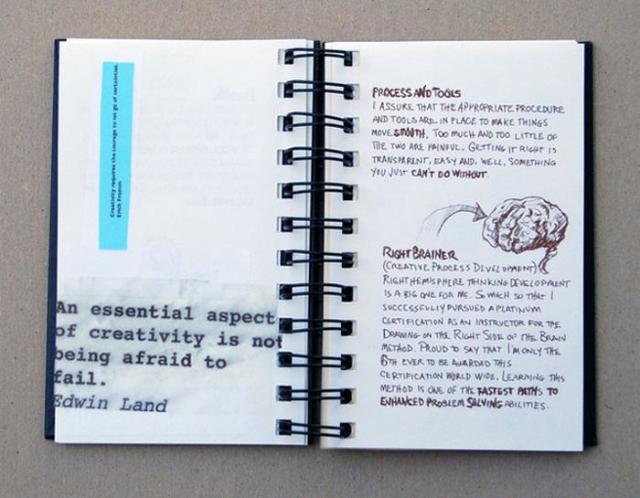 Creativity requires the courage to let go of certainties.
Erich Fromm
An essential aspect
of creativity is not
being afraid to
fail.
Edwin Land
PROCESS AND TOOLS
I ASSURE THAT THE APPROPRIATE PROCEDURE
AND TOOLS ARE IN PLACE TO MAKE THINGS
MOVE SMOOTH. TOO MUCH AND TOO LITTLE OF
THE TWO ARE PAINFUL. GETTING IT RIGHT IS
TRANSPARENT, EASY AND, WELL, SOMETHING
YOU JUST CAN'T DO WITHOUT.
RIGHT BRAINER
(CREATIVE PROCESS DEVELOPMENT)
RIGHT HEMISPHERE THINKING DEVELOPMENT
IS A BIG ONE FOR ME. SO MUCH SO THAT I
SUCCCESSFULLY PURSUED A PLATINUM
CERTIFICATION AS AN INSTRUCTOR FOR THE
DRAWING ON THE RIGHT SIDE OF THE BRAIN
METHOD. PROUD TO SAY THAT I'M ONLY THE
8TH EVER TO BE AWARDED THIS
CERTIFICATION WORLD WIDE. LEARNING THIS
METHOD IS ONE OF THE FASTEST PATHS TO
ENHANCED PROBLEM SOLVING ABILITIES.